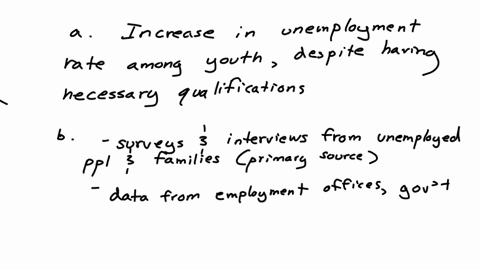 a. Increase in unemployment
rate among youth, despite having
necessary qualifications
b. - surveys & interviews from unemployed
ppl & families (primary source)
- data from employment offices, gov't